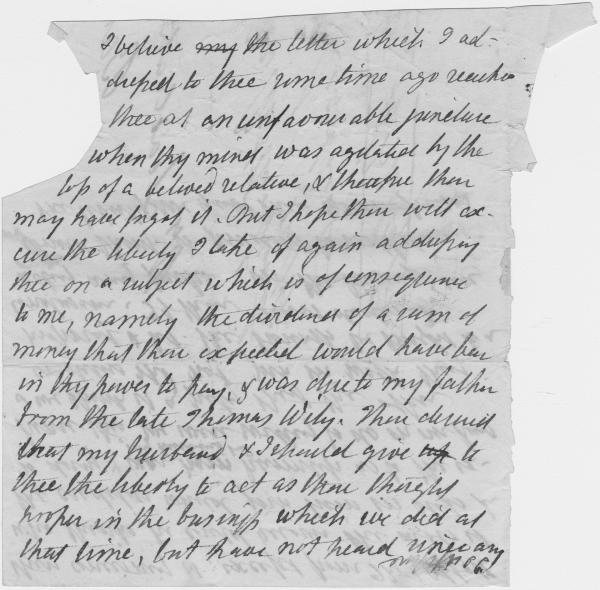 I believe my the letter which I ad-
dressed to thee some time ago reach
thee at an unfavourable juncture
when thy mind was agitated by the
loss of a beloved relative, & therefore thou
may have forgot it. But I hope thou will ex-
cuse the liberty I take of again addressing
thee on a subject which is of consequence
to me, namely the dividend of a sum of
money that thou expected would have been
in thy power to pay, & was due to my father
from the late Thomas Wily. Thou desired
that my husband & I should give to
thee the liberty to act as thou thought
proper in the business which we did at
that time, but have not heard since any